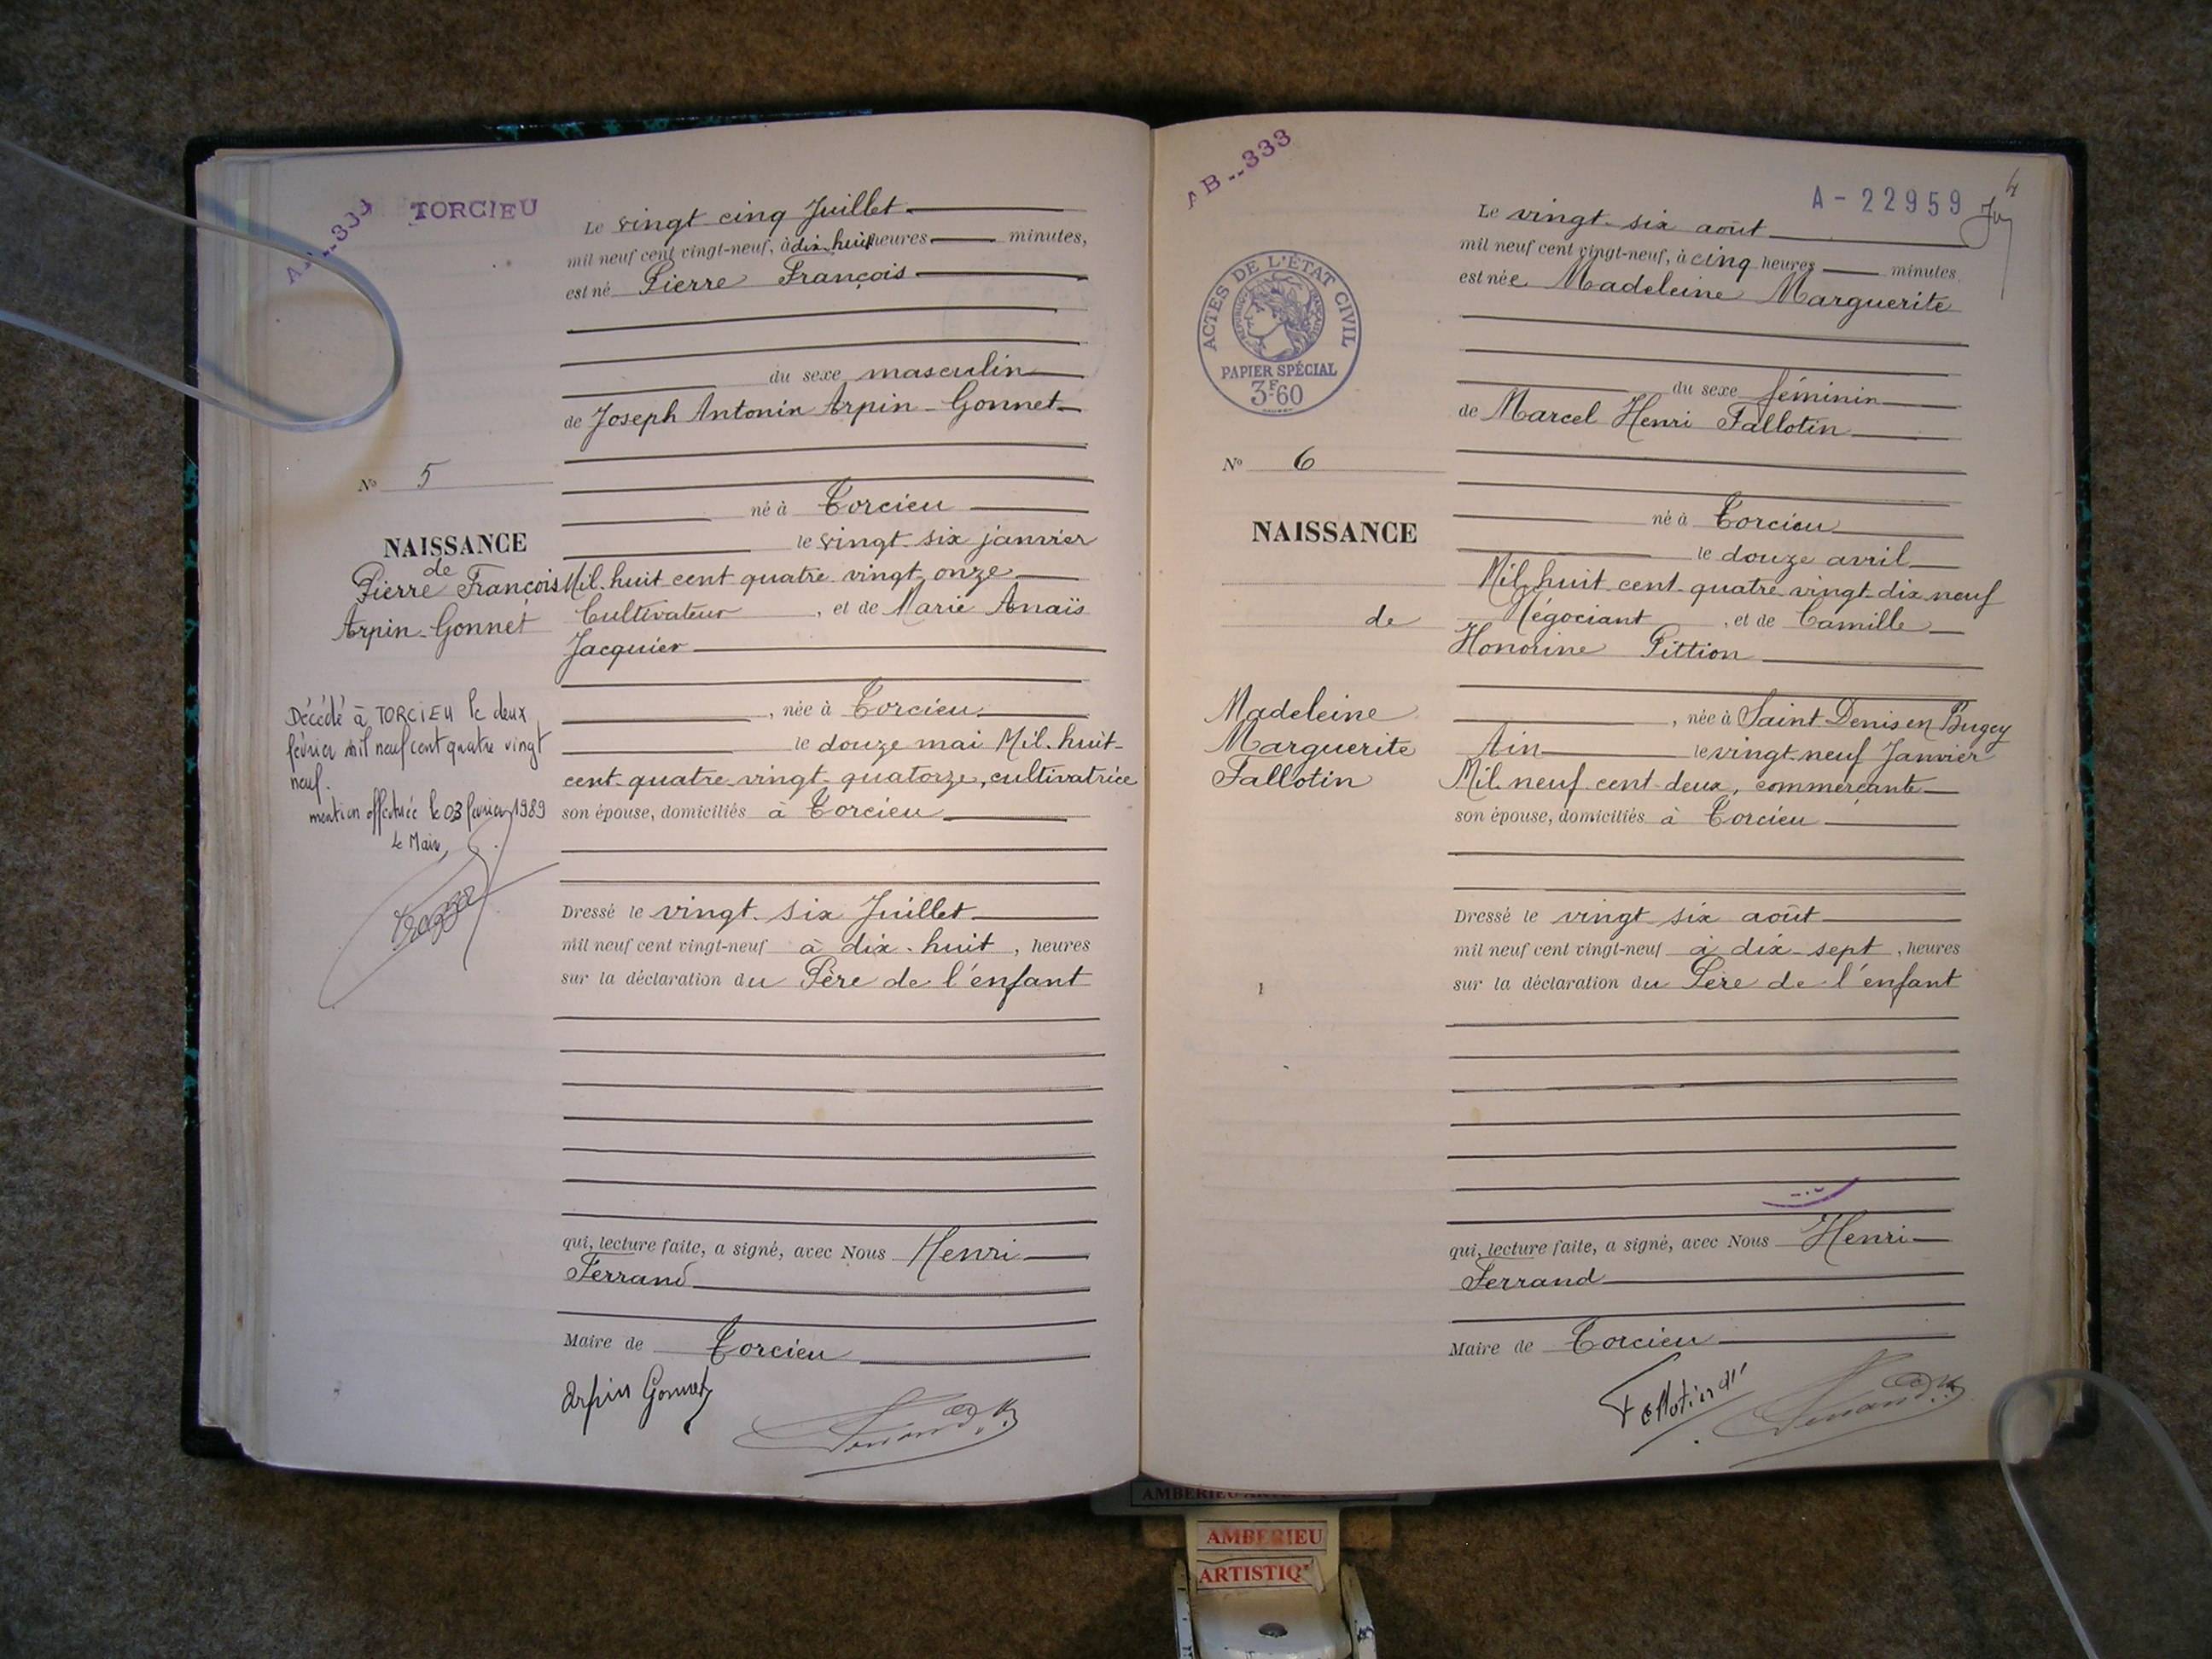 TORCIEU
Le vingt cinq Juillet
mil neuf cent vingt-neuf, à dix-huit heures minutes,
est né Pierre François
du sexe masculin
de Joseph Antonin Arpin-Gonnet
No 5
né à Torcieu
le vingt-six janvier
NAISSANCE
de
Pierre François
Arpin-Gonnet
Mil huit cent quatre vingt onze
Cultivateur, et de Marie Anaïs
Jacquier
, née à Torcieu
le douze mai Mil-huit-
cent quatre-vingt-quatorze, cultivatrice
son épouse, domiciliés à Torcieu
Décédé à TORCIEU le deux
février mil neuf cent quatre vingt
neuf.
mention effectuée le 03 février 1989
Le Maire,
Dressé le vingt-six Juillet
mil neuf cent vingt-neuf à dix-huit, heures
sur la déclaration du Père de l'enfant
qui, lecture faite, a signé, avec Nous Henri
Ferrand
Maire de Torcieu
Arpin Gonnet
AB--333
A-22959
4
ACTES DE L'ÉTAT CIVIL
RÉPUBLIQUE FRANÇAISE
PAPIER SPÉCIAL
3F60
Le vingt-six août
mil neuf cent vingt-neuf, à cinq heures minutes
est née Madeleine Marguerite
du sexe féminin
de Marcel Henri Fallotin
No 6
né à Torcieu
le douze avril
NAISSANCE
de
Madeleine
Marguerite
Fallotin
Mil huit cent quatre vingt-dix neuf
Négociant, et de Camille
Honorine Pittion
, née à Saint Denis en Bugey
Ain le vingt-neuf Janvier
Mil neuf cent-deux, commerçante
son épouse, domiciliés à Torcieu
Dressé le vingt six août
mil neuf cent vingt-neuf à dix-sept, heures
sur la déclaration du Père de l'enfant
qui, lecture faite, a signé, avec Nous Henri
Ferrand
Maire de Torcieu
AMBERIEU
ARTISTIQ